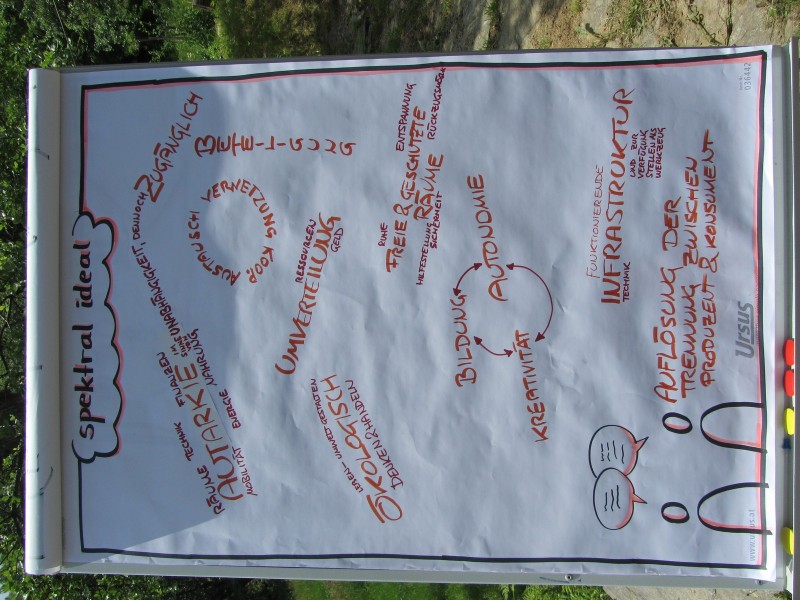 spektral ideal
RÄUME TECHNIK FINANZEN
AUTARKIE
IM SINNE VON
UNABHÄNGIGKEIT, DENNOCH ZUGÄNGLICH
MOBILITÄT ENERGIE NAHRUNG
AUSTAUSCH VERNETZUNG KOOP.
BETEILIGUNG
LEBEN - UMWELT GESTALTEN
ÖKOLOGISCH
DENKEN & HANDELN
RESSOURCEN
UMVERTEILUNG
GELD
RUHE
ENTSPANNUNG
FREIE & GESCHÜTZTE
RÄUME
RÜCKZUGSRAUM
HILFESTELLUNG SICHERHEIT
BILDUNG
AUTONOMIE
KREATIVITÄT
FUNKTIONIERENDE
INFRASTRUKTUR
TECHNIK
UND ZUR
VERFÜGUNG
STELLEN ALS
WERKZEUG
AUFLÖSUNG DER
TRENNUNG ZWISCHEN
PRODUZENT & KONSUMENT
www.ursus.at
Ursus
036442